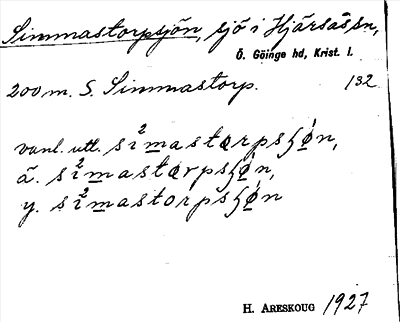 Simmastorpsjön, sjö i Hjärsås sn,
Ö. Göinge hd, Krist. l.
200 m. S. Simmastorp. 132
vanl. utt. si²mastɐrpsɧø̀n,
ä. si²mastɐrpsɧø̀n,
y. si²mastorpsɧø̀n
H. ARESKOUG 1927